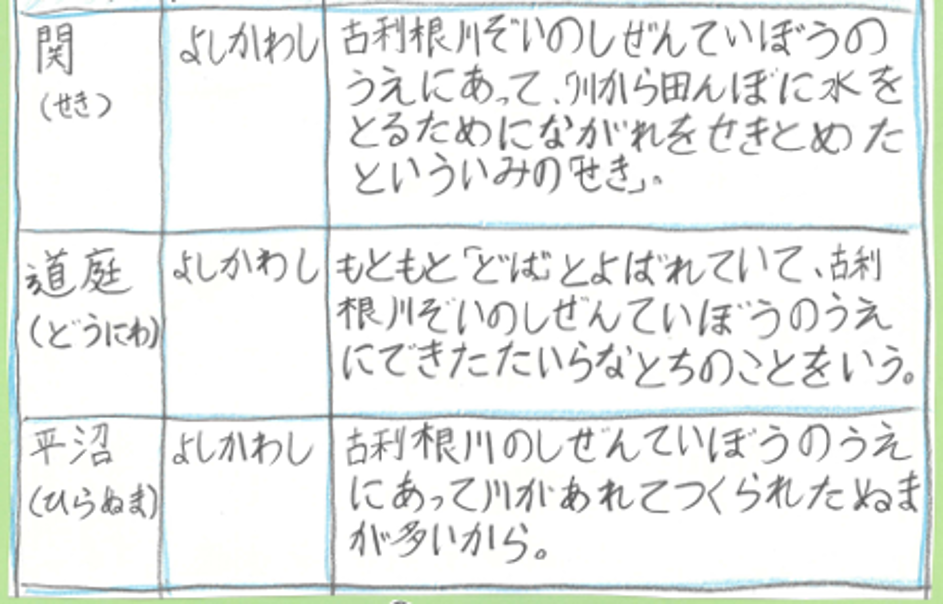 関
(せき)
よしかわし
古利根川ぞいのしぜんていぼうの
うえにあって、川から田んぼに水を
とるためにながれをせきとめた
といういみの「せき」。
道庭
(どうにわ)
よしかわし
もともと「どば」とよばれていて、古利
根川ぞいのしぜんていぼうのうえ
にできたたいらなとちのことをいう。
平沼
(ひらぬま)
よしかわし
古利根川のしぜんていぼうのうえ
にあって川があれてつくられたぬま
が多いから。